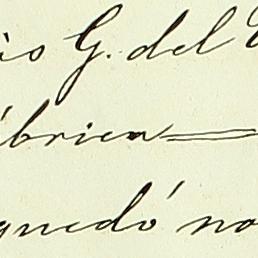 is G. del
ábrica
quedó no